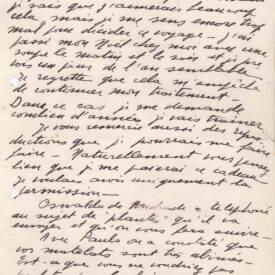 je sais que j'aimerais beaucoup
cela, mais je me sens encore trop
mal pour décider ce voyage - J'ai
passé mon Noël chez moi avec une
soupe le matin et le soir et je
vois un jour de l'an semblable -
Je regrette que cela m'empêche
de continuer mon traitement -
Dans ce cas je me demande
combien d'années je vais traîner
Je vous remercie aussi des repro-
ductions que je pourrais me faire
faire - Naturellement vous pensez
bien que je me paierai ce cadeau -
Je voulais avoir uniquement la
permission -
Oswaldo de Andrade a téléphoné
au sujet de "plantes" qu'il va
envoyer et qu'on vous fera suivre -
Avec Paulo on a constaté que
vos matelots sont très abimés -
Est-ce que vous ne voudriez pas